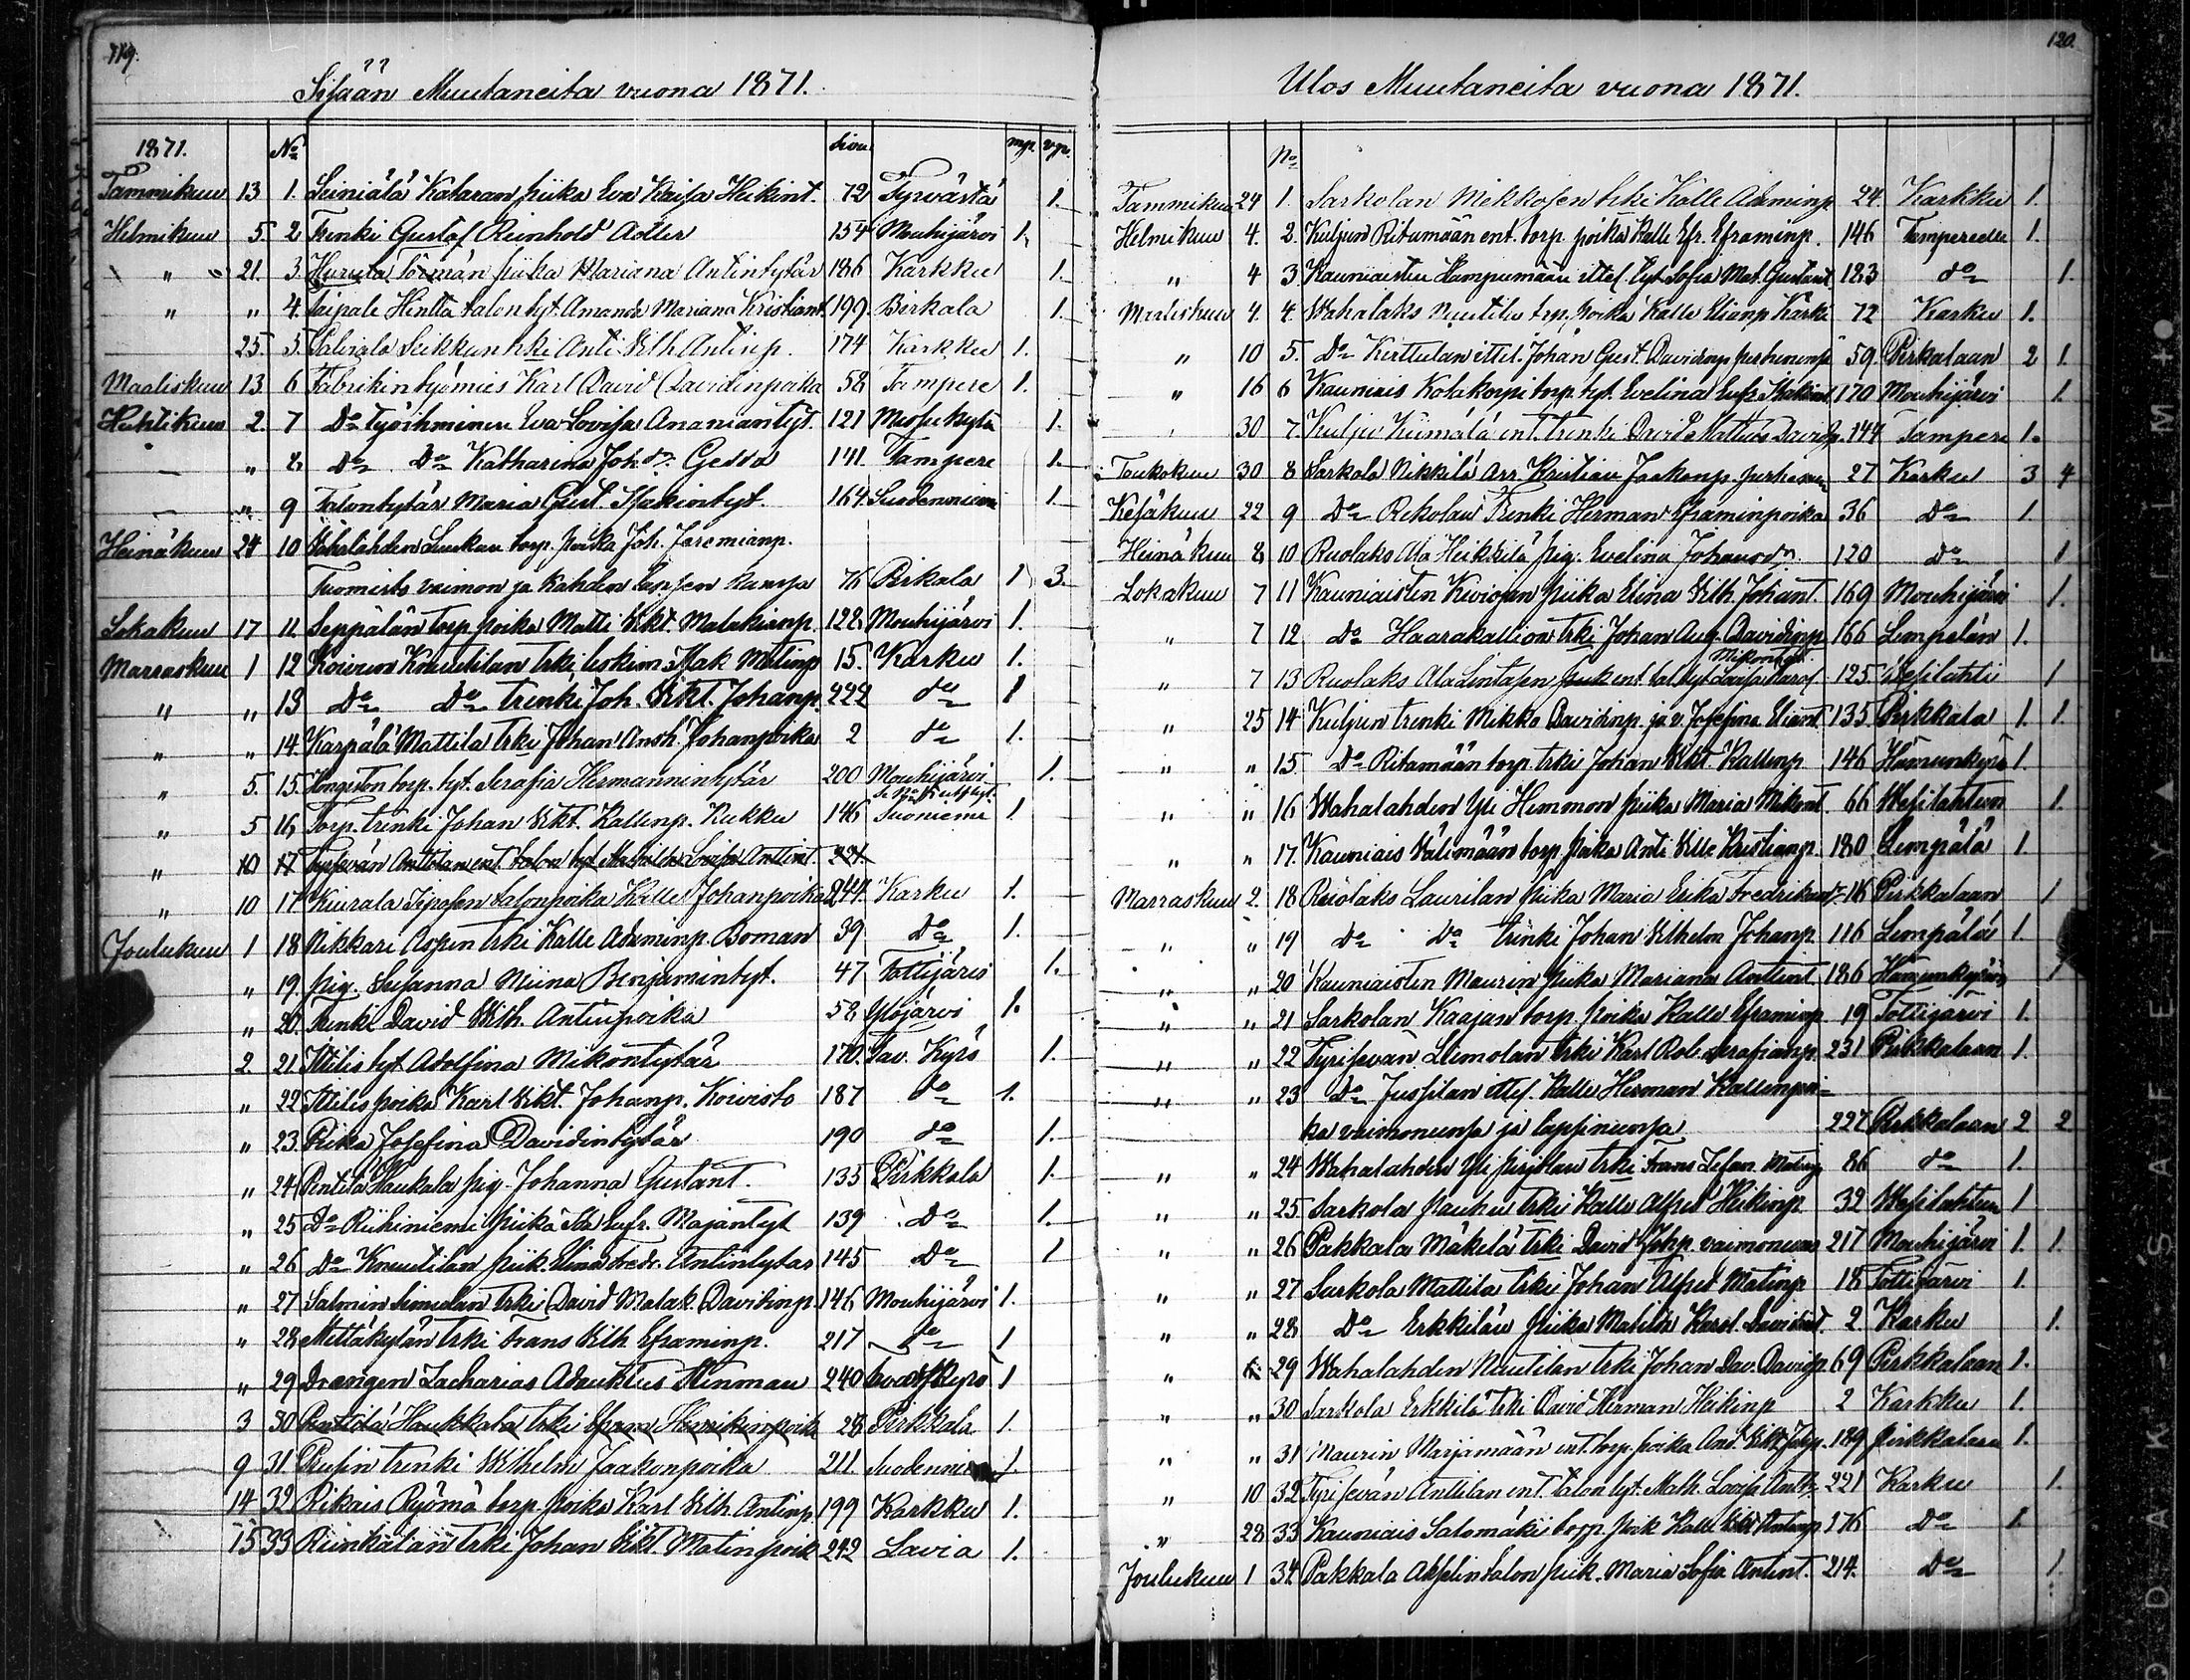 119.
Sisään Muutaneita vuona 1871.
1871. No sivu mp. vp.
Tammikuu 13 1. Seiniälä Kataran piika Eva Kaisa Heikint. 72 Tyrväästä 1.
Helmikuu 5 2 Trenki Gustaf Reinhold Adler 154 Mouhijärvi 1.
" 21. 3. piika Mariana Antintytär 186 Karkku 1.
" " 4. Taipale Hintta talon tyt. Amanda Mariana Kristiant. 199. Birkala 1.
25. 5. Leikkun trki Anti Wilh. Antinp. 174 Karkku 1.
Maaliskuu 13 6 Fabrikin työmies Karl David Davidinpoika 58 Tampere 1.
Huhtikuu 2. 7 Do työihminen Eva Lovisa Ananiantyt. 121 Messukylä 1.
" 8 Do Do Katharina Joh. dr. Gedda 141. Tampere 1.
" 9 Talontytär Maria Gust. Isakintyt. 164. Suodenniemi 1.
Heinäkuu 24 10 Wahalahden torp. poika Joh. Jeremianp.
Tuomisto vaimon ja kahden lapsen kanssa 76 Pirkala 1 3.
Lokakuu 17 11 Seppälän torp. poika Matti Wikt. Malakianp. 122. Mouhijärvi 1.
Marraskuu 1 12 Koivun Knuutilan trki Isak Matinp 15. Karku 1.
" " 13 Do Do trenki Joh. Wikt. Johanp. 222 do 1
" " 14. Karpälä Mattila trki Johan Ansh. Johanpoika 2 do 1.
" 5. 15. Hongiston torp. tyt. Serafia Hermannintytär 200 Mouhijärvi 1.
" 5 16 Torp. trenki Johan Wikt. Kallenp. Kukku 146 Suoniemi 1
" 10 17 Tyrisevän Anttilan ent. talon tyt. Mathilda Lovisa Antint. 221.
" 10 17 Kiurala Talonpoika Kalle Johanpoika 244. Karku 1.
Joulukuu 1 18 Nikkari Aspin trki Kalle Adaminp. Boman 39 Do 1.
" 19. pig. Susanna Miina Benjamintyt. 47 Tottijärvi 1.
" 20. Trenki David Wilh. Antinpoika 58 Ylöjärvi 1.
2 21 Ittelis tyt Adolfina Mikontytär 170. Hav. Kyrö 1.
" 22 Ittelis poika Karl Wikt. Johanp. Koivisto 187 do 1.
" 23. Piika Josefina Davidintytär 190 do 1.
" 24 Pentilä Haukala pig. Johanna Gustant. 135 Pirkkala 1.
" 25 Do Riihiniemi piika Eufr. Majantyt 139 Do 1.
" 26 Do Knuutilan piik. Elina Fredr. Antintytar 145 Do 1
" 27 Salmin Simulan trki David Malak. Davidinp. 146 Mouhijärvi 1.
" 28 Mettäkylän trki Frans Wilh. Eframinp. 217 do 1
" 29 Drengen Zacharias Adauktus Stenman 240 Kyrö 1
3 30 Penttilä Haukkala trki Efram Henrikinpoika 28 Pirkkala 1.
9 31. Pusin trenki Wilhelm Jaakonpoika 211. Suodenniemi 1.
14 32 Rikais Ryömä torp. poika Karl Wilh. Antinp 199 Karkku 1.
15 33 trki Johan Wikt. Matinpoik 242 Lavia 1.
120.
Ulos Muutaneita vuona 1871.
No
Tammikuu 24 1. Sarkolan Mikkosen trki Kalle Adaminp 24. Karkku 1.
Helmikuu 4. 2. Kuljun Ritamään ent. torp. poika Kalle Efr. Eframinp. 146 Tampereelle 1.
" 4 3 Kauniaisten Hampumään ittel. tyt Sofia Mat. Gustant 183 do 1.
Maaliskuu 4. 4. Wahalaks Nuutilu trp. poika Kalle Elianp Karki 72 Karku 1.
" 10 5. Do Kirttulan ittel. Johan Gust. Davidinp perhenensä 59. Pirkalaan 2 1.
" 16 6 Kauniais Kotakorpi torp. tyt. Evelina Eufr. Isakint. 170 Mouhijärvi 1.
" 30 7. Kulju Kiimälä ent. trenki David Mathias Davidp. 144 Tampere 1.
Toukokuu 30 8 Sarkola Nikkilä Arr. Kristian Jaakonp. perheineen 27 Karku 3 4
Kesäkuu 22 9 Do Rekolan Trenki Herman Eframinpoika 36 Do 1
Heinäkuu 8 10 Ruolaks Ala Heikkilä pig. Evelina Johansdr. 120 do 1
Lokakuu 7 11 Kauniaisten Kiviojan piika Elina Wilh. Johant. 169 Mouhijärvi 1.
" 7 12 Do Haarakallion trki Johan Aug. Davidinp 166 Lempälän 1.
Mikontyt.
" 7 13 Ruolaks Ala Lintasen ent. tal. tyt Lovisa Karol. 125. Wesilahti 1
" 25 14 Kuljun trenki Mikko Davidinp. ja v. Josefina Eliant. 135 Pirkkala 1. 1.
" " 15. Do Ritamään torp. trki Johan Wikt. Kallenp 146 Hämeenkyrö 1.
" " 16 Wahalahden Yli Hemmon piika Maria Mikont. 66 Wesilahteen 1.
" " 17. Kauniais Välimään torp. poika Anti Ville Kristianp. 180 Lempälä 1
Marraskuu 2. 18 Ruolaks Laurilan piika Maria Erika Fredrikadr. 116 Pirkkalaan 1
" " 19 do Do trenki Johan Wilhelm Johanp. 116 Lempälä 1.
" " 20 Kauniaisten Maurin piika Mariana Antint 186 Hämeenkyrön 1
" " 21 Sarkolan Kaajan torp. poika Kalle Eframinp 19 Tottijärvi 1.
" " 22 Tyrisevän Liimolan trki Karl Rob. Serafianp. 231 Pirkkalaan 1.
" " 23 Do Jussilan ittel. Kalle Herman Kallenpoi-
ka vaimonensa ja lapsinensa 227 Pirkkalaan 2 2
" " 24 Wahalahden Yli Pirjolan trki Frans Stefan. Matinp 86 do 1.
" " 25 Sarkola Pauhu trki Kalle Alfred Heikinp 32 Wesilahteen 1
" " 26 Pakkala Mäkelä trki David Johp. vaimoneen 217 Mouhijärvi 1. 1.
" " 27 Sarkola Mattila trki Johan Alfred Matinp 18 Tottijärvi 1.
" " 28 Do Erkkilän piika Matilda Karol. Davidint. 2 Karku 1.
" 29 Wahalahden Nuutilan trki Johan Dav. Davidp. 69 Pirkkalaan 1.
" " 30 Sarkola Erkkilä trki David Herman Heikinp 2 Karkku 1.
" " 31 Maurin Marjamään ent torp. poika And. Wikt. Johp. 189 Pirkkalaan 1.
" 10 32 Tyrisevän Anttilan ent. talon tyt. Math. Lovisa Antt. 221 Karku 1.
" 28 33 Kauniais Salomäki torp. poik Kalle Wikt Antinp 176 Do 1.
Joulukuu 1 34 Pakkala Asplin talon piik. Maria Sofia Antint. 214. Do 1.